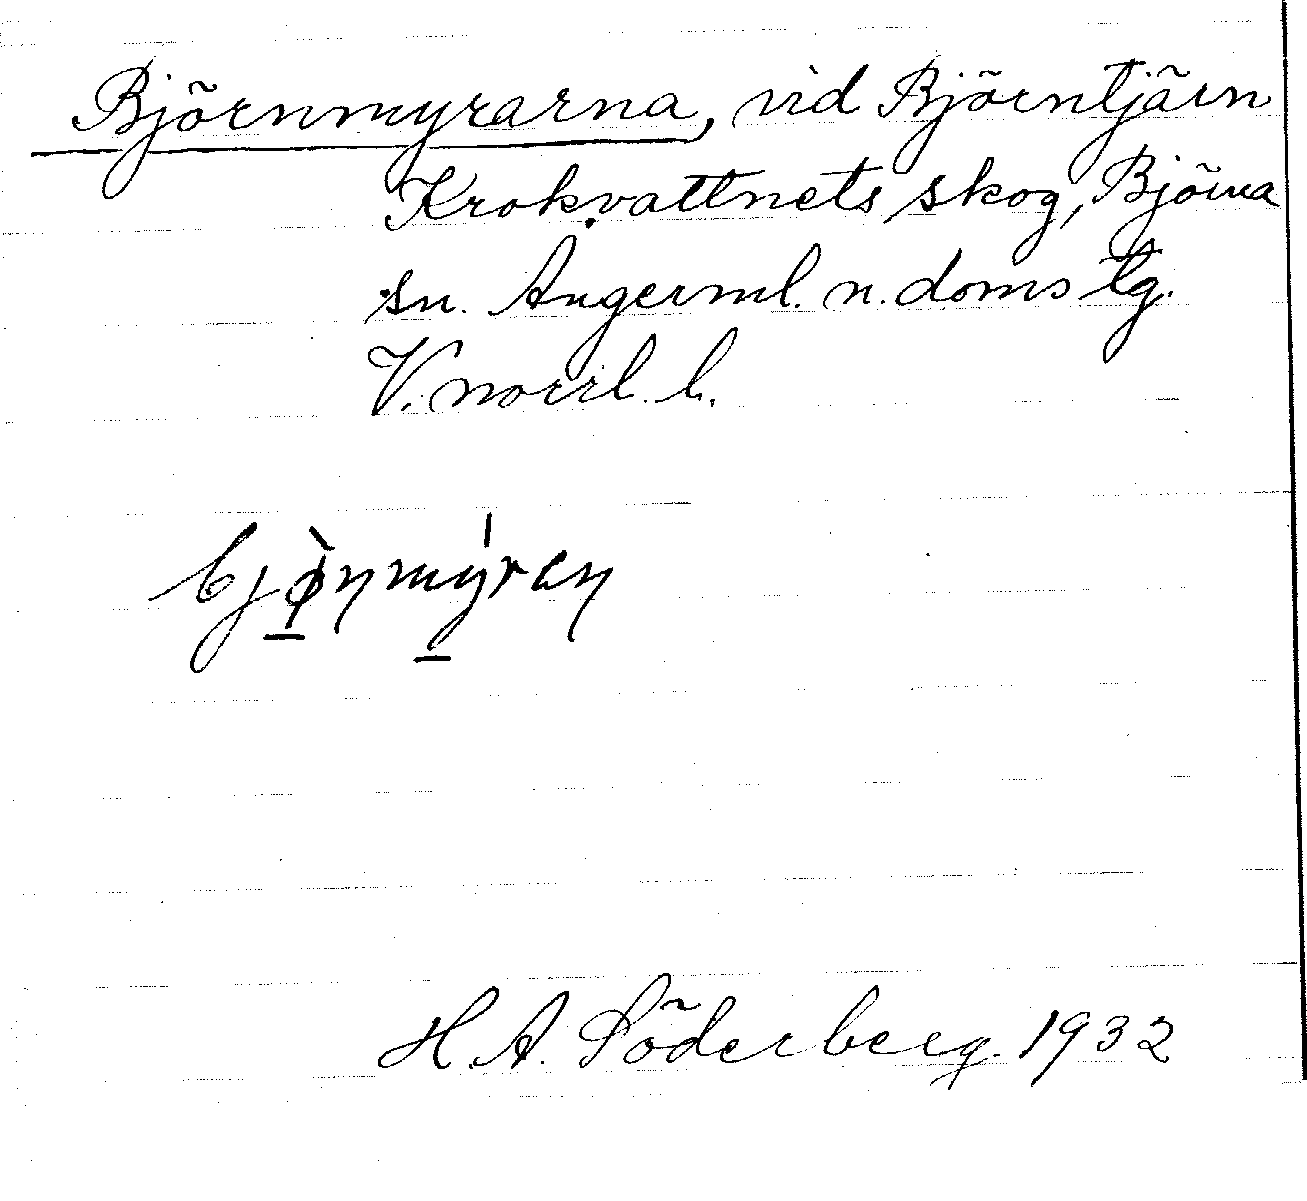 Björnmyrarna, vid Björntjärn
Krokvattnets skog, Björna
sn. Ångerml. n. doms tg.
V. norrl. l.
bjø̀nmýren
H. A. Söderberg. 1932